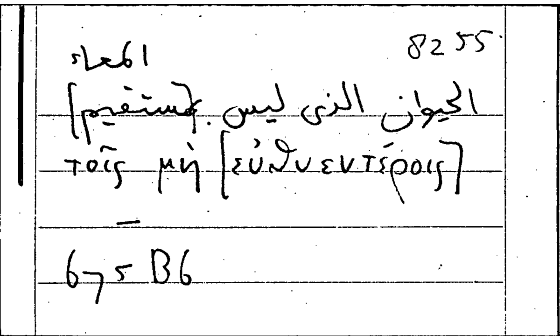 8255
المعاء
الحيوان الذى ليس بمستقيم]
τοῖς μὴ [εὐθυεντέροις]
675 B6